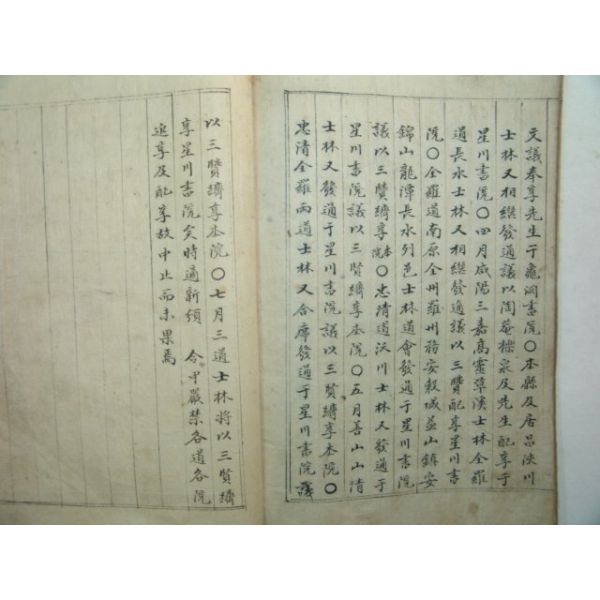 又議奉享先生于龜洞書院〇本縣及居昌陜川
士林又相繼發通議以陶菴櫟泉及先生配享于
星川書院〇四月咸陽三嘉高靈草溪士林全羅
道長水士林又相繼發通議以三賢配享星川書
院〇全羅道南原全州羅州務安糓城益山鎮安
錦山龍潭長水列邑士林道會發通于星川書院
議以三賢躋享本院〇忠清道沃川士林又發通于
星川書院議以三賢躋享本院〇五月善山山清
士林又發通于星川書院議以三賢躋享本院〇
忠清全羅兩道士林又合席發通于星川書院議
以三賢躋享本院〇七月三道士林將以三賢躋
享星川書院矣時適新頒 令甲嚴禁各道各院
追享及配享故中止而未果焉